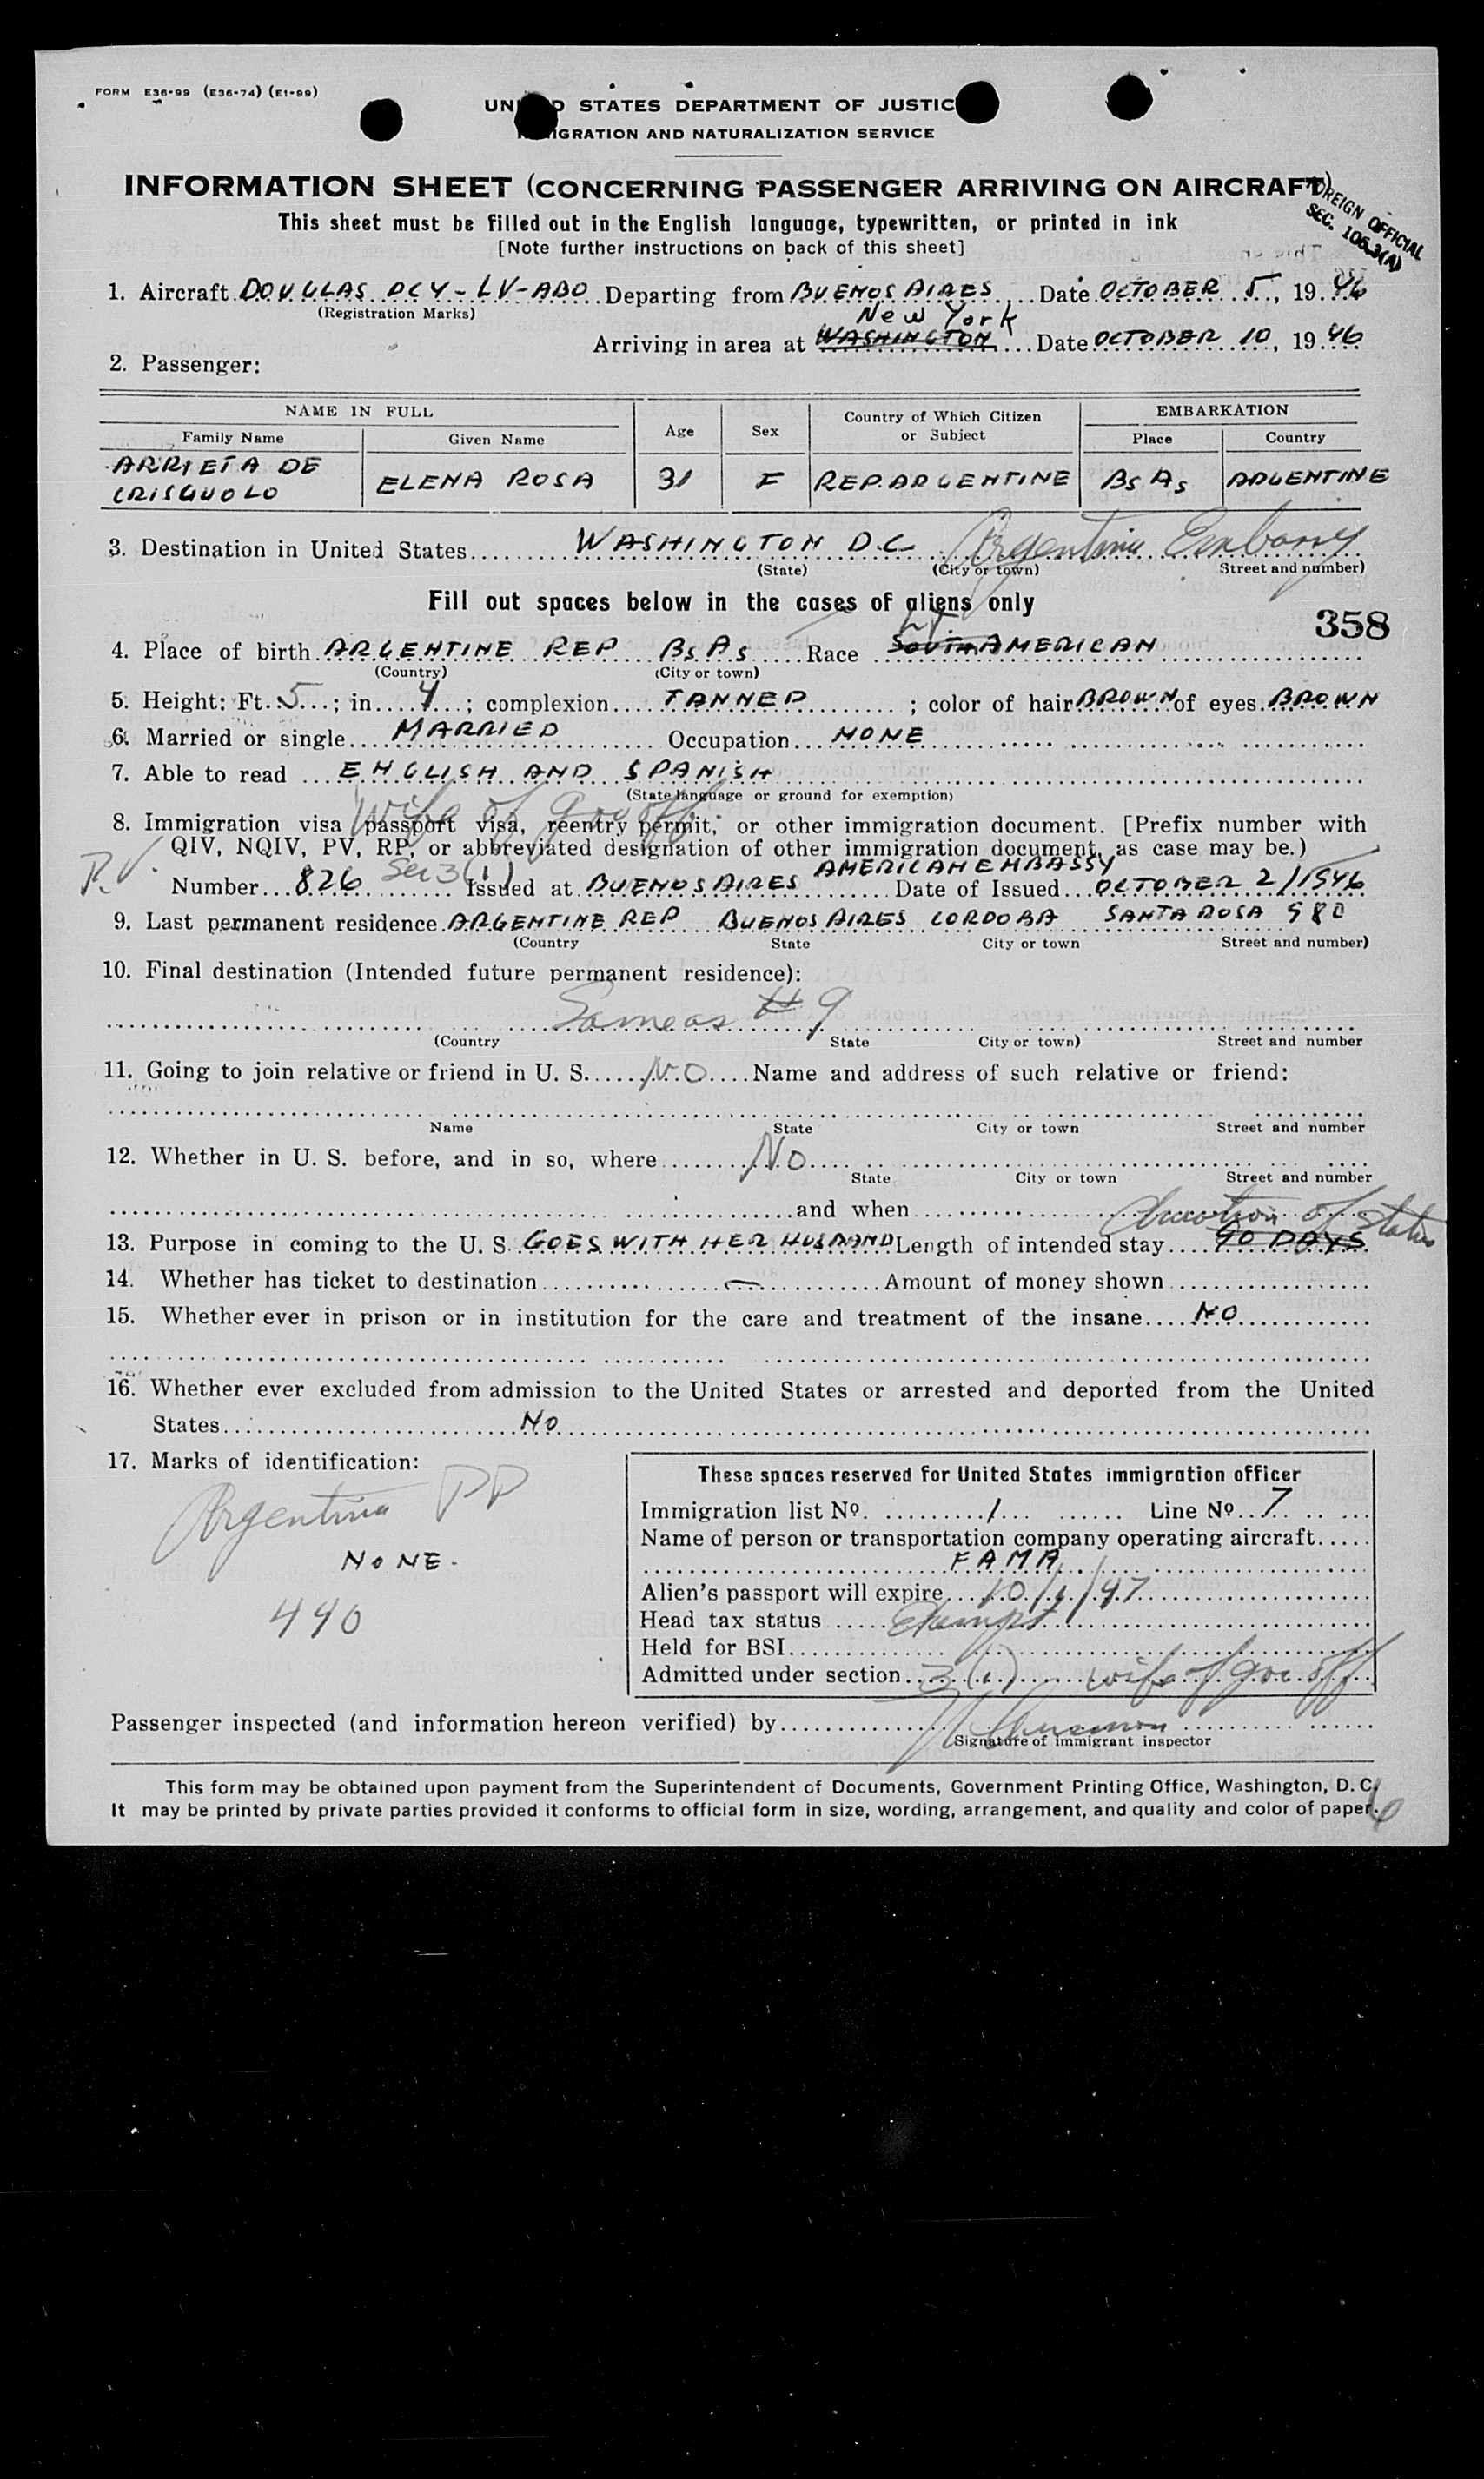 FORM E36-99 (E36-74) (E1-99)
UNITED STATES DEPARTMENT OF JUSTICE
IMMIGRATION AND NATURALIZATION SERVICE
INFORMATION SHEET (CONCERNING PASSENGER ARRIVING ON AIRCRAFT)
FOREIGN OFFICIAL
SEC. 106.3(A)
This sheet must be filled out in the English language, typewritten, or printed in ink
[Note further instructions on back of this sheet]
1. Aircraft DOUGLAS DC4-LV-ABO Departing from BUENOS AIRES Date OCTOBER 5, 1946
(Registration Marks)
New York
Arriving in area at WASHINGTON Date OCTOBER 10, 1946
2. Passenger:
NAME IN FULL Age Sex Country of Which Citizen or Subject EMBARKATION
Family Name Given Name Place Country
ARRIETA DE
CRISCUOLO ELENA ROSA 31 F REP. ARGENTINE Bs As ARGENTINE
3. Destination in United States WASHINGTON D.C. Argentina Embassy
(State) (City or town) Street and number)
Fill out spaces below in the cases of aliens only
358
4. Place of birth ARGENTINE REP Bs As Race SOUTH AMERICAN
(Country) (City or town)
5. Height: Ft. 5; in. 4; complexion TANNED; color of hair BROWN of eyes BROWN
6. Married or single MARRIED Occupation NONE
7. Able to read ENGLISH AND SPANISH
(State language or ground for exemption)
wife of gov off.
8. Immigration visa passport visa, reentry permit, or other immigration document. [Prefix number with
QIV, NQIV, PV, RP, or abbreviated designation of other immigration document, as case may be.)
P.V. Number 826 Sec 3(1) Issued at BUENOS AIRES AMERICAN EMBASSY Date of Issued OCTOBER 2/1946
9. Last permanent residence ARGENTINE REP BUENOS AIRES CORDOBA SANTA ROSA 980
(Country State City or town Street and number)
10. Final destination (Intended future permanent residence):
Same as #9
(Country State City or town) Street and number
11. Going to join relative or friend in U. S. NO Name and address of such relative or friend:
Name State City or town Street and number
12. Whether in U. S. before, and in so, where NO
State City or town Street and number
and when
duration of status
13. Purpose in coming to the U. S. GOES WITH HER HUSBAND Length of intended stay 90 DAYS
14. Whether has ticket to destination — Amount of money shown
15. Whether ever in prison or in institution for the care and treatment of the insane NO
16. Whether ever excluded from admission to the United States or arrested and deported from the United
States NO
17. Marks of identification:
Argentina PP
NONE.
440
These spaces reserved for United States immigration officer
Immigration list Nº. 1 Line Nº. 7
Name of person or transportation company operating aircraft
FAMA
Alien's passport will expire 10/1/47
Head tax status Exempt
Held for BSI
Admitted under section 3(1) wife of gov off
Passenger inspected (and information hereon verified) by
Signature of immigrant inspector
This form may be obtained upon payment from the Superintendent of Documents, Government Printing Office, Washington, D. C.
It may be printed by private parties provided it conforms to official form in size, wording, arrangement, and quality and color of paper.
6